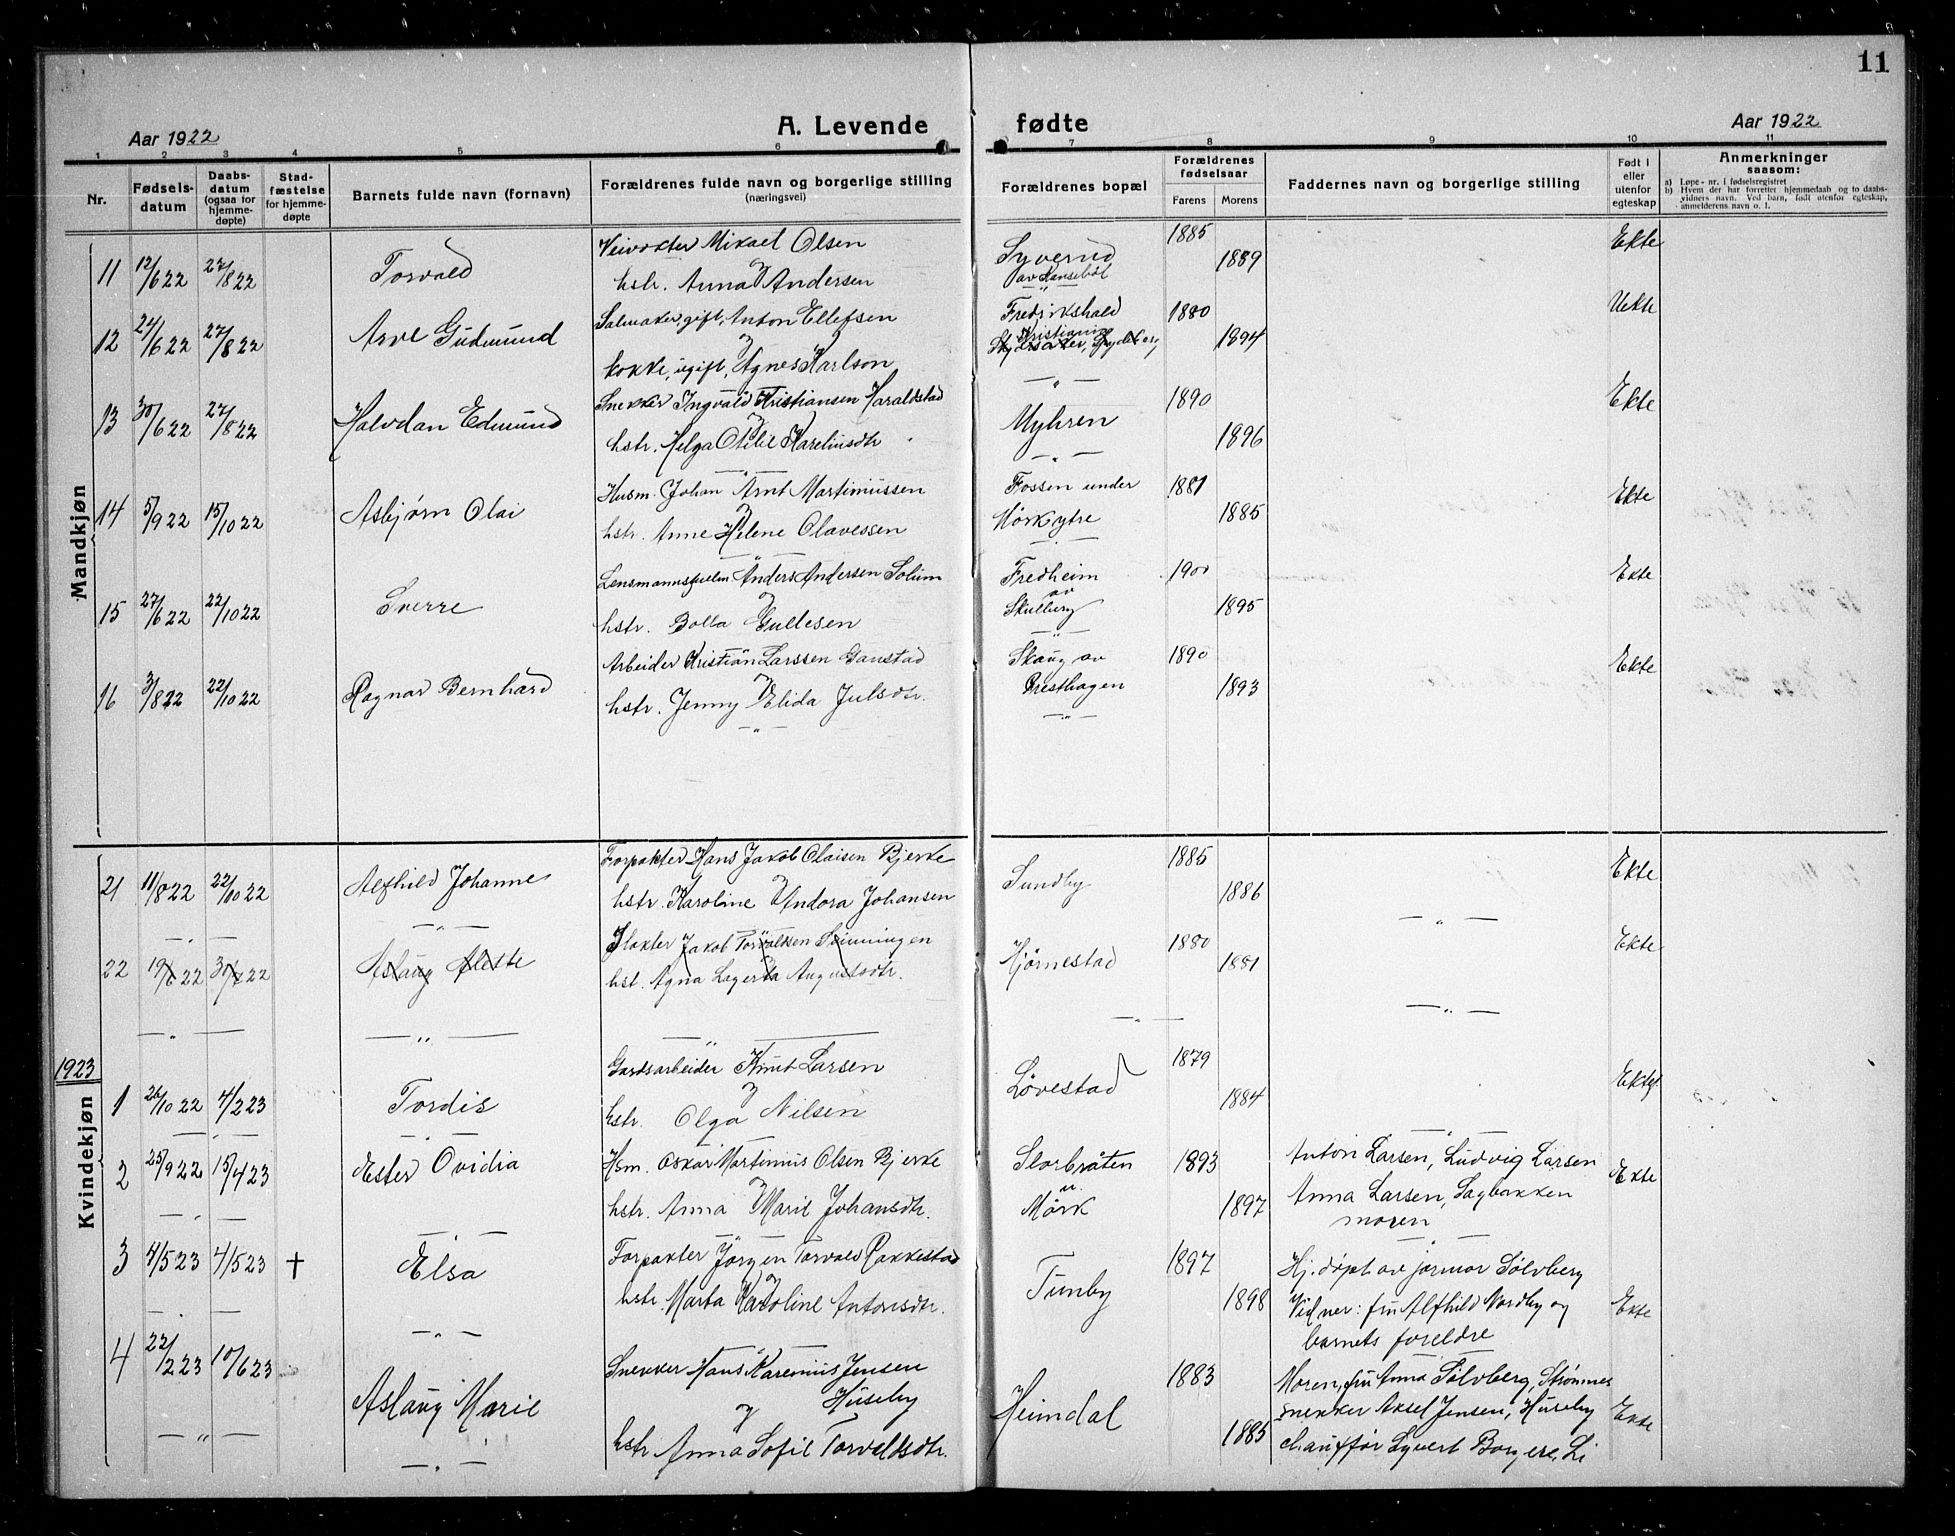 11
Aar 1922
A. Levende
fødte
Aar 1922
1 2 3 4 5 6 7 8 9 10 11
Nr.
Fødsels-
datum
Daabs-
datum
(ogsaa for
hjemme-
døpte)
Stad-
fæstelse
for hjemme-
døpte
Barnets fulde navn (fornavn)
Forældrenes fulde navn og borgerlige stilling
(næringsvei)
Forældrenes bopæl
Forældrenes
fødselsaar
Farens Morens
Faddernes navn og borgerlige stilling
Født i
eller
utenfor
egteskap
Anmerkninger
saasom:
a) Løpe-nr. i fødselsregistret
b) Hvem der har forrettet hjemmedaab og to daabs-
vidners navn. Ved barn, født utenfor egteskap,
anmelderens navn o. l.
Mandkjøn
11 12/6 22 27/8 22 Torvald
Veivokter Mikael Olsen
og
hstr. Anna Andersen
Syverud
av Hansebøl
1885 1889 Ekte
12 24/6 22 27/8 22 Arve Gudmund
Salmaker, gift, Anton Ellefsen
og
kokke, ugift, Agnes Karlson
Fredrikshald
Kristiania
1880 1894 Uekte
13 30/6 22 27/8 22 Halvdan Edmund
Snekker Ingvald Kristiansen Haraldstad
og
hstr. Helga Otilie Karelinsdtr
Myhren
1890 1896 Ekte
14 5/9 22 15/10 22 Asbjørn Olai
Husm. Johan Arnt Martinussen
og
hstr. Anne Helene Olavessen
Fossen under
Mørk ytre
1881 1885 Ekte
15 27/6 22 22/10 22 Sverre
Lensmannsfullm Anders Andersen Solum
og
hstr. Bolla Gullesen
Fredheim
av
Skulberg
1900 1895 Ekte
16 3/8 22 22/10 22 Ragnar Bernhard
Arbeider Kristian Larssen Ganstad
og
hstr. Jenny Elida Julsdtr.
Skaug av
Presthagen
1890 1893 Ekte
21 11/8 22 22/10 22 Alfhild Johanne
Forpakter Hans Jakob Olaisen Bjerke
og
hstr. Karoline Andora Johansen
Sundby
1885 1886 Ekte
22 19/6 22 30/7 22 Aslaug Alette
Slakter Jakob Torvaldsen Skinningen
hst. Agna Lagerta Augustsdtr.
Hjørnestad
1880 1881 Ekte
1923
Kvindekjøn
1 26/10 22 4/2 23 Tordis
Gardsarbeider Knut Larsen
og
hstr. Olga Nilsen
Løvestad
1879 1884 Ekte
2 25/9 22 15/4 23 Ester Ovidia
Hsm. Oskar Martinius Olsen Bjerke
og
hstr. Anna Marie Johansdtr.
Storbråten
u.
Mørk
1893 1897
Anton Larsen, Ludvig Larsen
Anna Larsen, Sagbakken
moren
Ekte
3 4/5 23 4/5 23 † Elsa
Forpakter Jörgen Torvald Rakkestad
og
hstr. Marta Karoline Antonsdtr.
Tunby
1897 1898
Hj. døpt av jormor Sølvberg
Vidner: fru Alfhild Nordby og
barnets foreldre
Ekte
4 22/2 23 10/6 23 Aslaug Marie
Snekker Hans Karenius Jensen
Huseby
og
hstr Anna Sofie Torvaldsdtr.
Heimdal
1883 1885
Moren, fru Anna Sølvberg, Strømnes
snekker Aksel Jensen, Huseby
chauffør Syvert Borgere, Li
Ekte